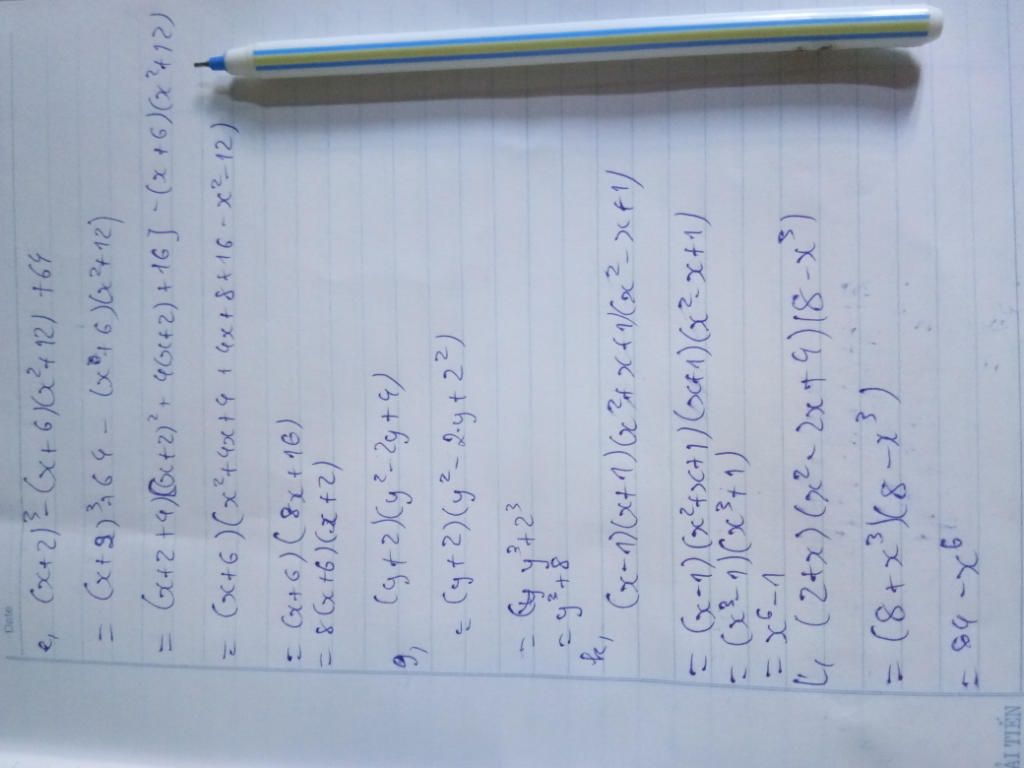 Date
e, (x+2)³ - (x+6)(x²+12) + 64
= (x+2)³ + 64 - (x+6)(x²+12)
= (x+2+4)[(x+2)² + 4(x+2) + 16] - (x+6)(x²+12)
= (x+6)(x²+4x+4 + 4x+8+16 - x²-12)
= (x+6)(8x+16)
= 8(x+6)(x+2)
g, (y+2)(y²-2y+4)
= (y+2)(y²-2.y+2²)
= y³+2³
= y³+8
k, (x-1)(x+1)(x²+x+1)(x²-x+1)
= (x-1)(x²+x+1)(x+1)(x²-x+1)
= (x³-1)(x³+1)
= x⁶-1
(2+x)(x²-2x+4)(8-x³)
= (8+x³)(8-x³)
= 64-x⁶
ẢI TIẾN